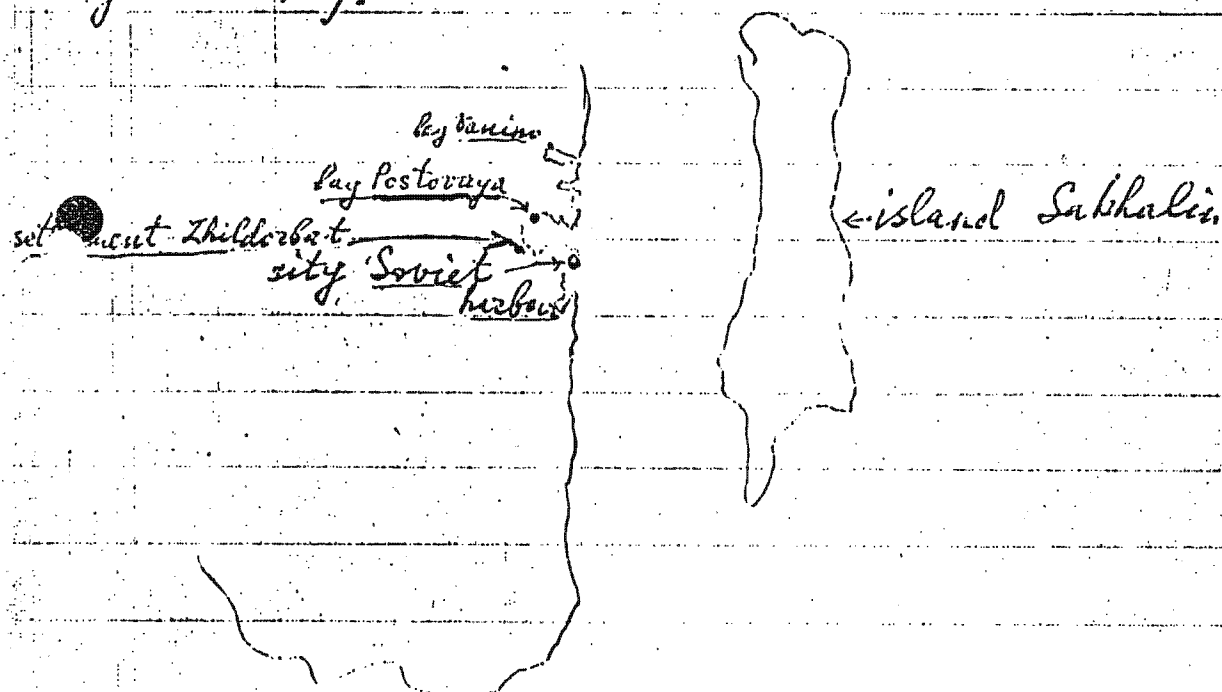 bay Vanino
bay Postovaya
Zhildorbat
sity Soviet
harbour
←island Sakhalin